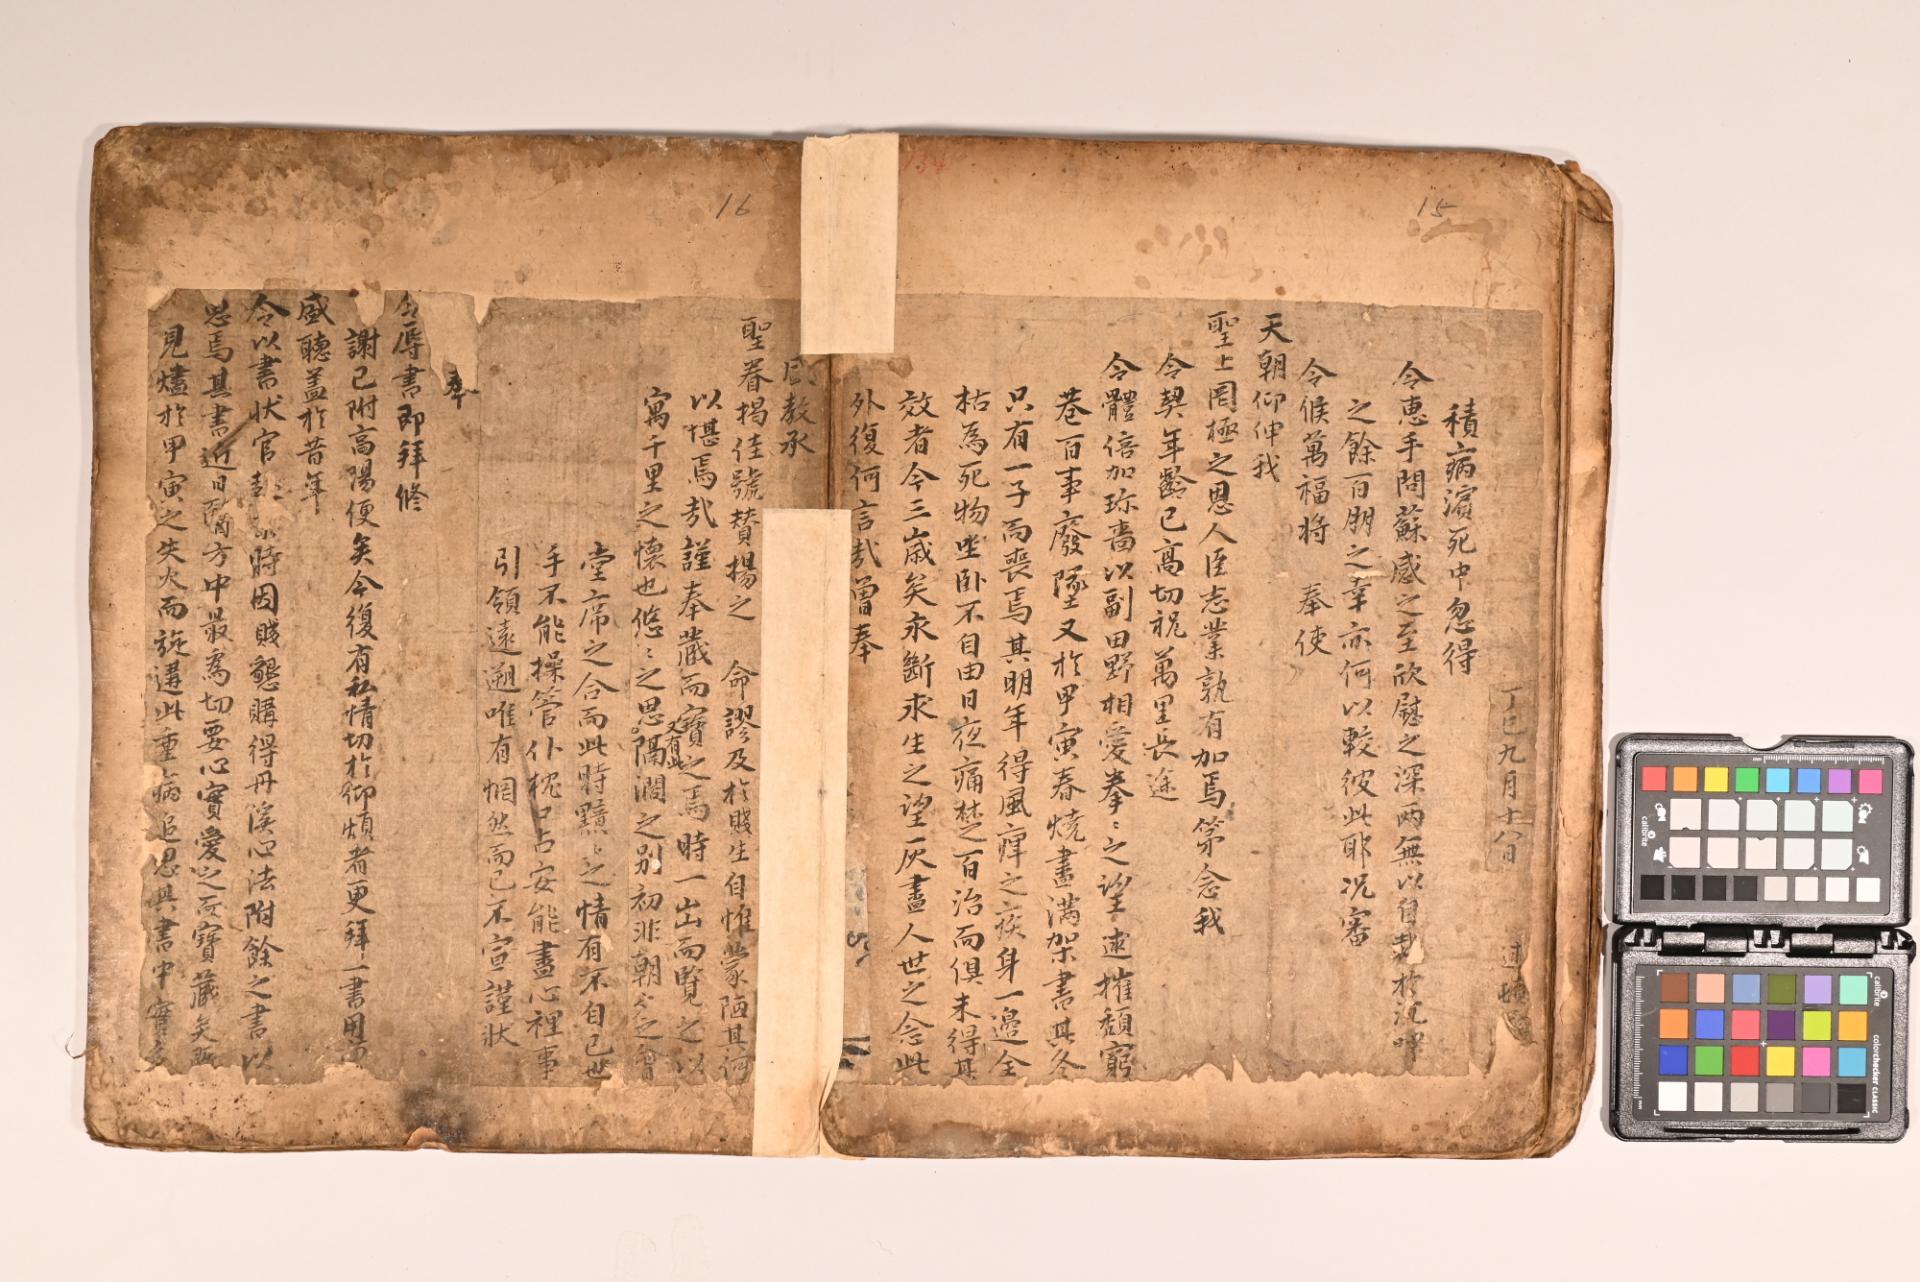 15
丁巳九月十八日
積病濱死中忽得
令惠手問蘇感之至欣慰之深兩無以自裁於沉呻
之餘百朋之幸亦何以較彼此耶况審
令候萬福將 奉使
天朝仰伸我
聖上罔極之恩人臣志業孰有加焉第念我
令契年齡已高切祝萬里長途
令體倍加珎嗇以副田野相愛拳〻之望逑摧頹窮
巷百事廢墜又於甲寅春燒盡滿架書其冬
只有一子而喪焉其明年得風痺之疾身一邊全
枯為死物坐卧不自由日夜痛楚百治而俱未得其
效者今三歲矣永斷求生之望灰盡人世之念此
外復何言哉曾奉
16
134
盛教承
聖眷揭佳號賛揚之 命謬及於賤生自惟蒙陋其何
以堪焉哉謹奉藏而寶之焉時一出而覽之以
又有此
寓千里之懷也悠〻之思隔濶之別初非朝夕之會
堂席之合而此時黯〻之情有不自已世
手不能操管仆枕口占安能盡心裡事
引領遠遡唯有惘然而已不宣謹狀
奉
令辱書即拜修
謝已附高陽便矣今復有私情切於仰煩者更拜一書用
盛聽盖於昔年
令以書狀官 時因賤懇購得丹溪心法附餘之書以
恩焉其書近日醫方中最為切要心實愛之而寶藏矣
見燼於甲寅之失火而旋遘此重病追思其書中實多